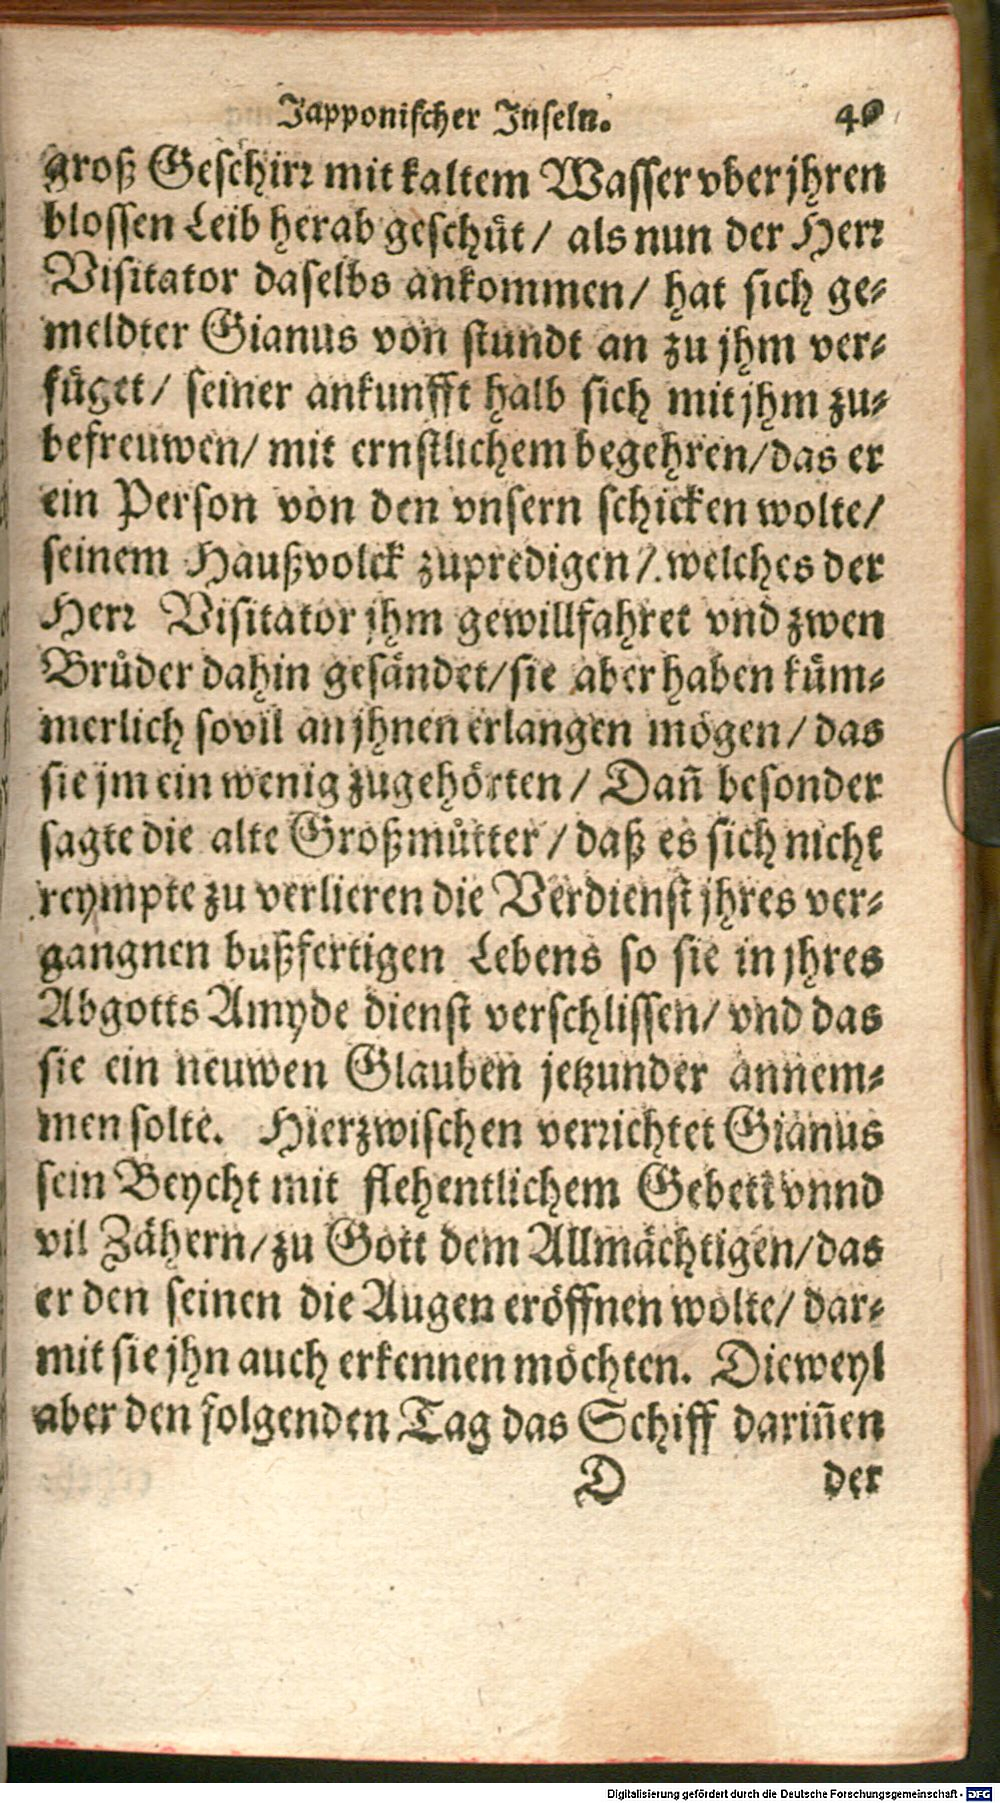 Japponischer Inseln. 40
groß Geschirr mit kaltem Wasser vber jhren
blossen Leib herab geschüt / als nun der Herr
Visitator daselbs ankommen / hat sich ge-
meldter Gianus von stundt an zu jhm ver-
füget / seiner ankunfft halb sich mit jhm zu-
befreuwen / mit ernstlichem begehren / das er
ein Person von den vnsern schicken wolte /
seinem Haußvolck zupredigen / welches der
Herr Visitator jhm gewillfahret vnd zwen
Brůder dahin gesändet / sie aber haben küm-
merlich sovil an jhnen erlangen mögen / das
sie jm ein wenig zugehörten / Dañ besonder
sagte die alte Großmůtter / daß es sich nicht
reympte zu verlieren die Verdienst jhres ver-
gangnen bußfertigen Lebens so sie in jhres
Abgotts Amyde dienst verschlissen / vnd das
sie ein neuwen Glauben jetzunder annem-
men solte. Hierzwischen verrichtet Gianus
sein Beycht mit flehentlichem Gebett vnnd
vil Zähern / zu Gott dem Allmächtigen / das
er den seinen die Augen eröffnen wolte / dar-
mit sie jhn auch erkennen möchten. Dieweyl
aber den folgenden Tag das Schiff dariñen
D der
Digitalisierung gefördert durch die Deutsche Forschungsgemeinschaft - DFG